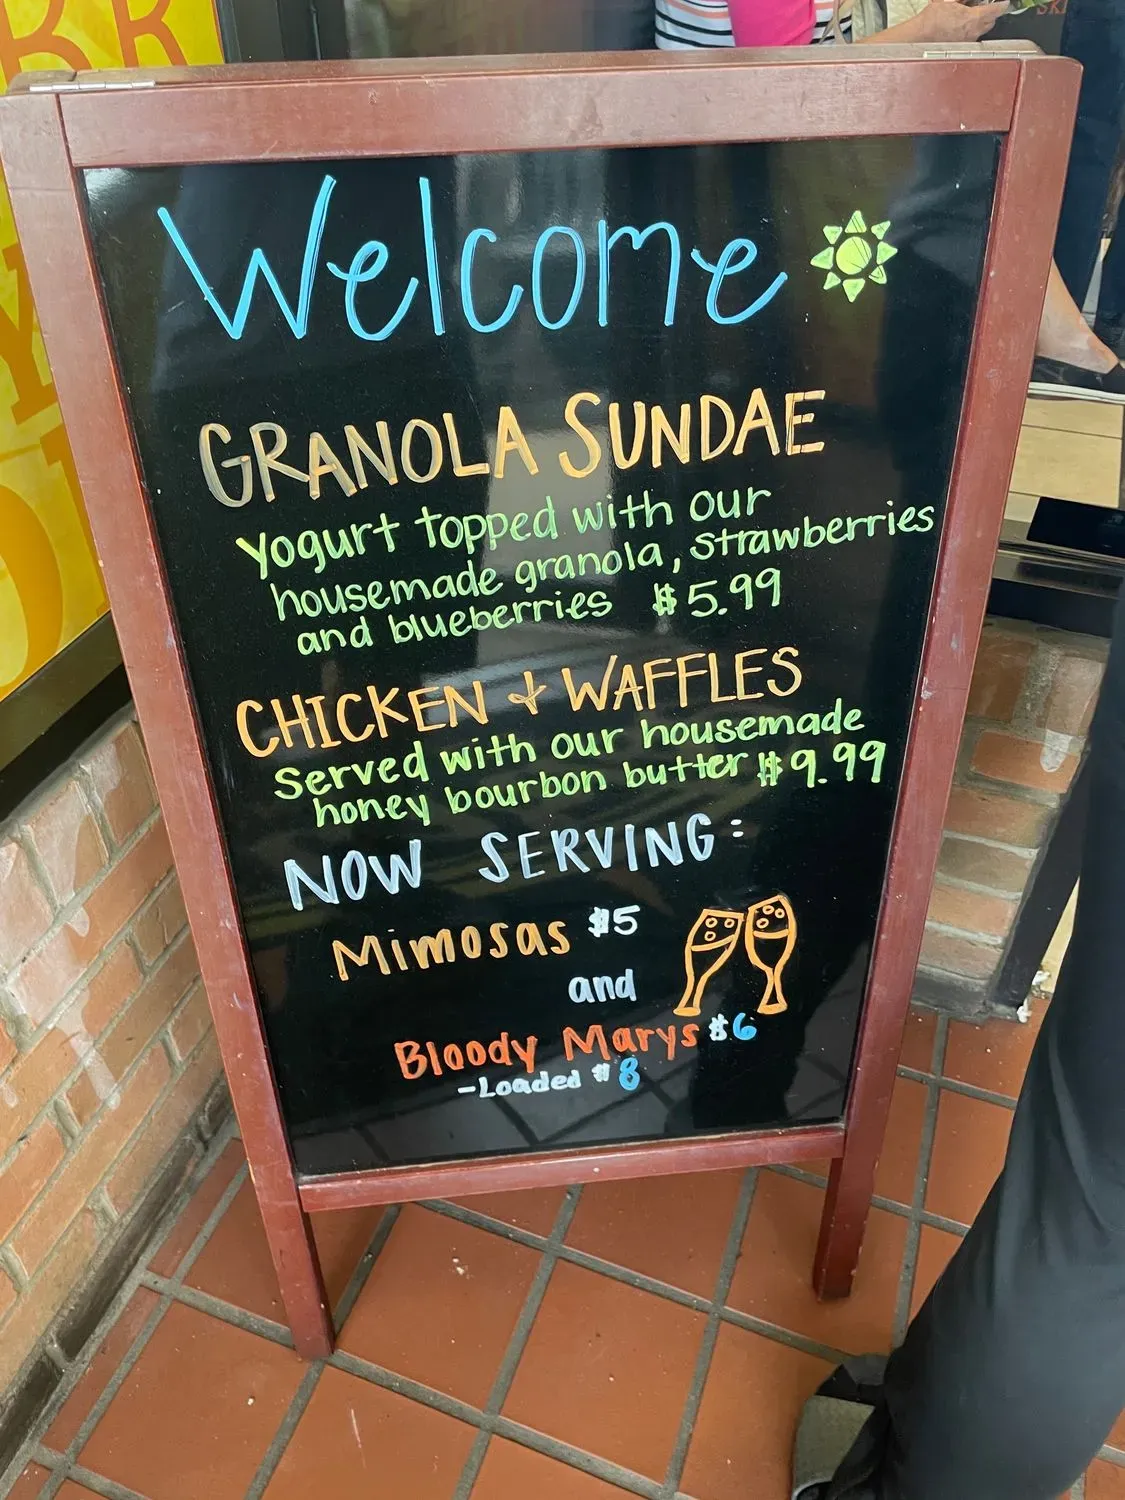 Welcome
GRANOLA SUNDAE
yogurt topped with our
housemade granola, strawberries
and blueberries $5.99
CHICKEN + WAFFLES
served with our housemade
honey bourbon butter $9.99
NOW SERVING:
Mimosas $5
and
Bloody Marys $6
-Loaded $8